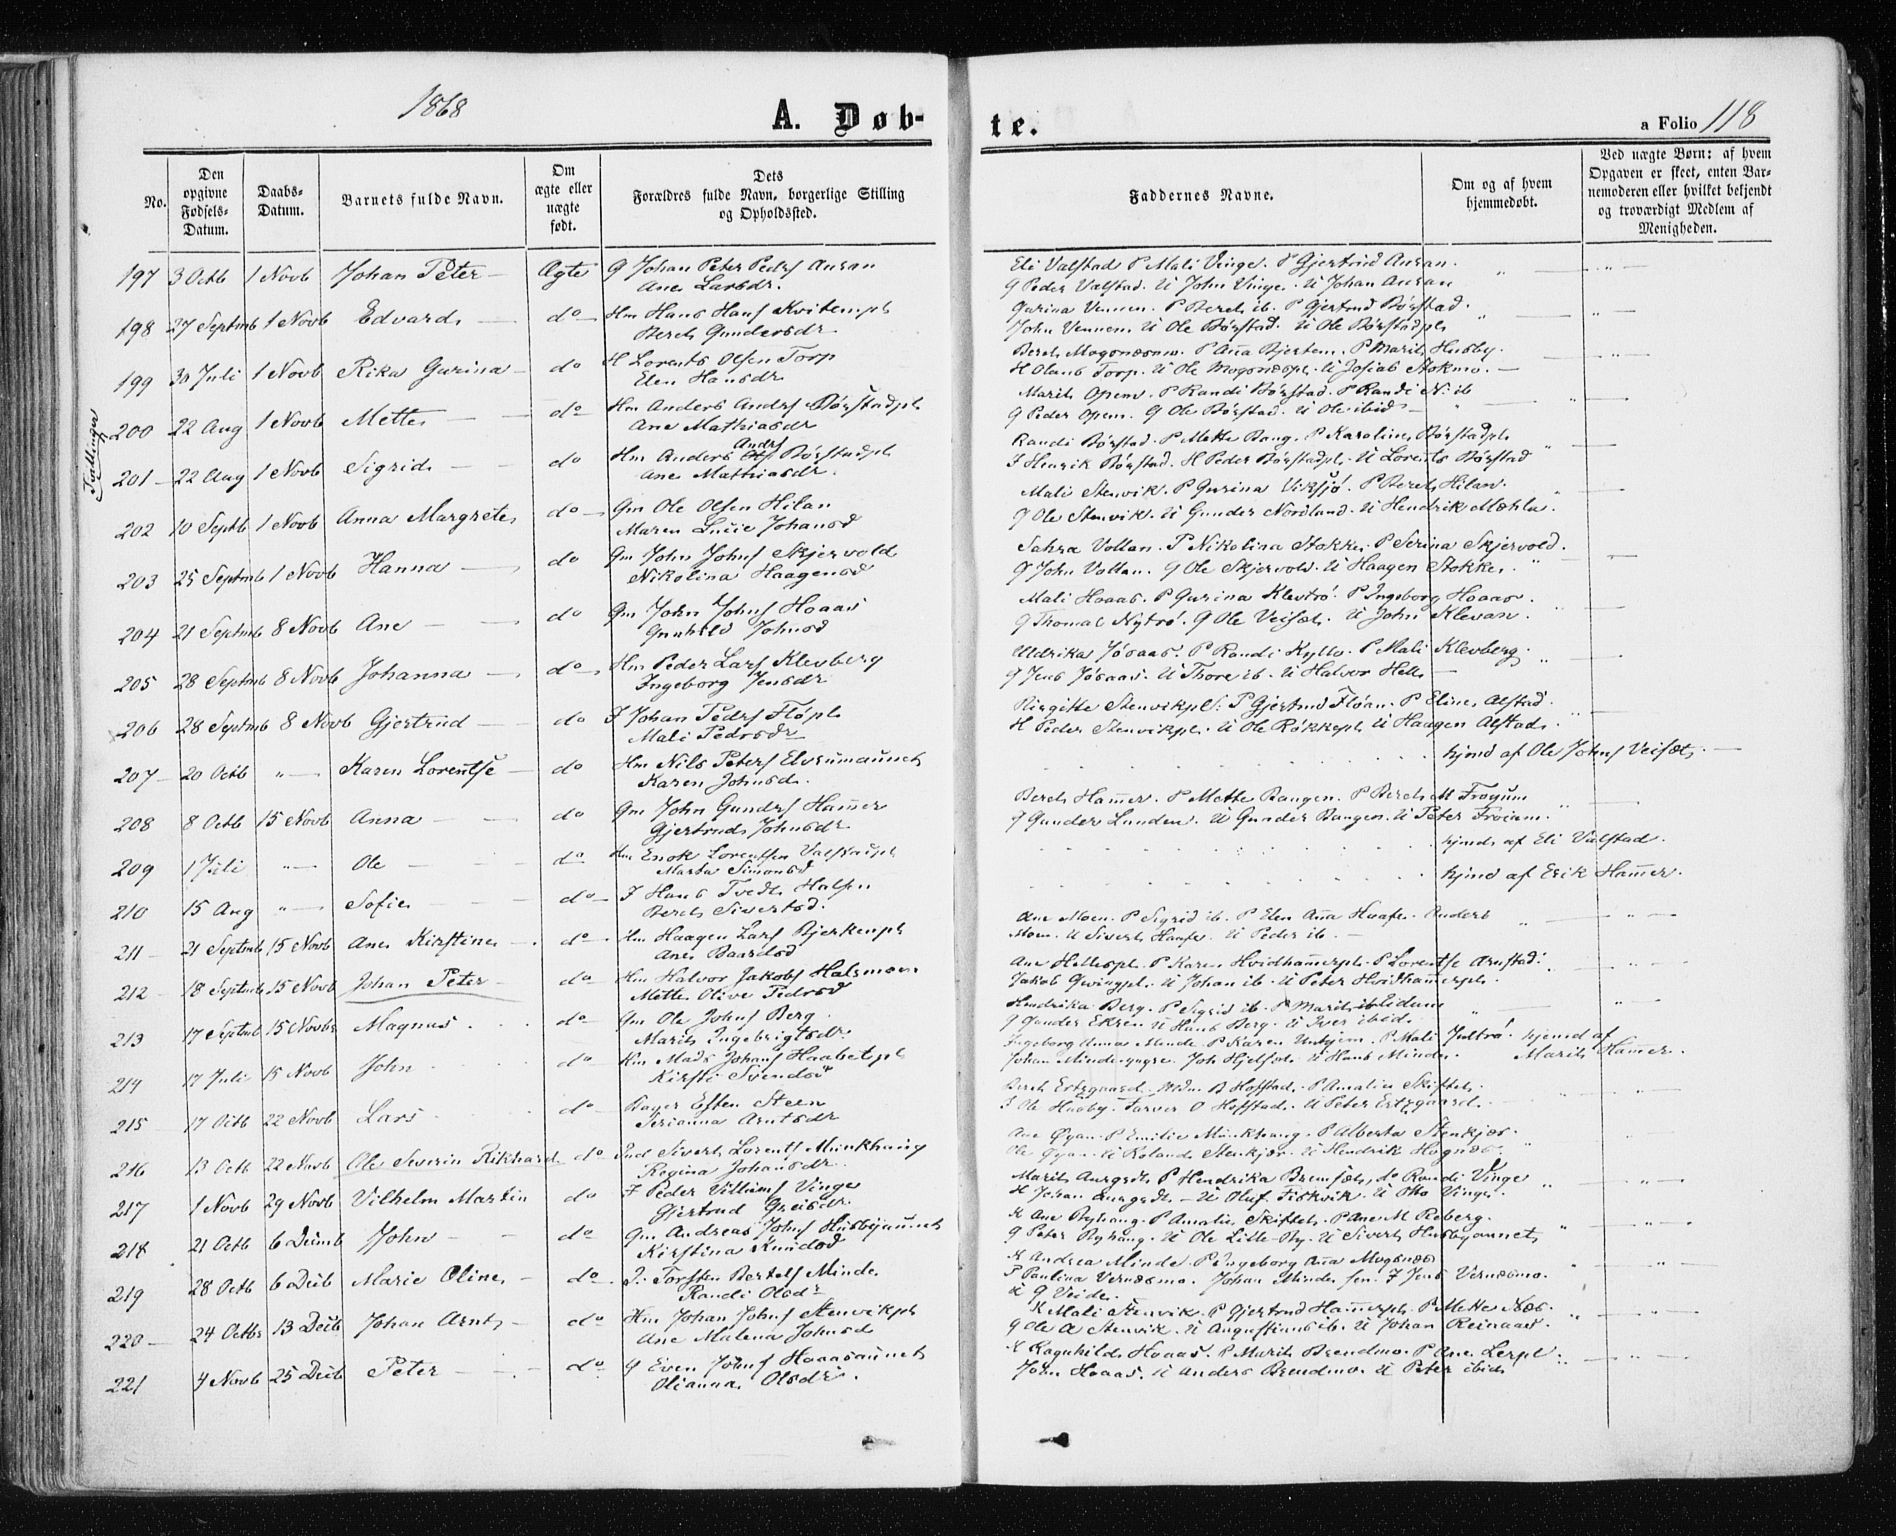 1868
A. Døb-
te.
a Folio 118
No.
Den opgivne Fødsels-Datum.
Daabs-Datum.
Barnets fulde Navn.
Om ægte eller uægte født.
Dets Forældres fulde Navn, borgerlige Stilling og Opholdssted.
Faddernes Navne.
Om og af hvem hjemmedøbt.
Ved uægte Børn: af hvem Opgaven er skeet, enten Barnemoderen eller hvilket bekjendt og troværdigt Medlem af Menigheden.
197 3 Octb 1 Novb Johan Peter Ægte G Johan Peter Pedrs Auran
Ane Larsdr.
Eli Valstad P Mali Vinge. P Gjertrud Auran.
G Peder Valstad. U John Vinge. U Johan Auran
198 27 Septmb 1 Novb Edvard do Hm Hans Hans Kvitempl
Bereth Gundersdr
Gurina Vennen. P Bereth ib. P Gjertrud Børstad.
John Vennen. U Ole Børstad. U Ole Børstadpl
199 30 Juli 1 Novb Rika Gurina do H Lorents Olsen Torp
Elen Hansdr
Bereth Mogsnæsmo. P Aña Bjertem. P Marith Husby.
H Olaus Torp. U Ole Mogsnæspl. U Josias Stokmo.
Tvillinger
200 22 Aug 1 Novb Mette do Hm Anders Andrs Børstadpl
Ane Mathiasdr
Marith Opem. P Randi Børstad. P Randi N. ib
G Peder Opem. G Ole Børstad. U Ole ibid
201 22 Aug 1 Novb Sigrid do Hm Anders Andrs Børstadpl
Ane Mathiasdr.
Randi Børstad. P Mette Bang. P Karoline Børstadpl.
I Henrik Børstad. H Peder Børstadpl. U Lorents Børstad
202 10 Septb 1 Novb Anna Margrete do Gm Ole Olsen Hilan
Maren Lucie Johansd
Mali Stenvik. P Gurina Viksjø. P Bereth Hilan.
G Ole Stenvik. U Gunder Nordland. U Hendrik Mæhla.
203 25 Septmb 1 Novb Hanna do Gm John Johns Skjervold
Nikolina Haagensd
Sahra Vollan. P Nikolina Stokke. P Serina Skjervold.
G John Vollan. G Ole Skjervold. U Haagen Stokke.
204 21 Septmb 8 Novb Ane do Gm John Johns Hoaas
Gunhild Johnsd
Mali Hoaas. P Gurina Klevtrø. P Ingeborg Hoaas.
G Thomas Nytrø. G Ole Veiset. U John Klevan.
205 28 Septmb 8 Novb Johanna do Hm Peder Lars Klevberg
Ingeborg Jensdr
Uldrika Jøsaas. P Randi Kyllo. P Mali Klevberg.
G Jens Jøsaas. U Thore ib. U Halvor Hell
206 28 Septmb 8 Novb Gjertrud do I Johan Pedrs Fløpl
Mali Pedrsdr
Birgitte Stenvikpl. P Gjertrud Fløan. P Eline Alstad
H Peder Stenvikpl. U Ole Røkkepl U Haagen Alstad.
207 20 Octb Karen Lorentse do Hm Nils Peters Elvrumaunet
Karen Johnsd.
hjmd af Ole Johns Veiset.
208 8 Octb 15 Novb Anna do Gm John Gundrs Ham̃er
Gjertrud Johnsdr
Bereth Ham̃er. P Mette Bangen. P Bereth M Frøyum
G Gunder Lunden. U Gunder Bangen. U Peter Frøium.
209 1 Juli Ole do Hm Enok Lorentsen Valstadpl
Marta Simonsd
hjmd. af Eli Valstad.
210 15 Aug Sofie do I Hans Tvedt Halsen
Bereth Sivertsd.
hjmd af Erik Ham̃er.
211 21 Septmb 15 Novb Ane Kirstine do Hm Haagen Lars Bjerkenpl
Ane Baardsd
Ane Moen. P Sigrid ib. P Elen Aña Haafe. Anders
Moen. U Sivert Haafe. U Peder ib.
212 18 Septmb 15 Novb Johan Peter do Hm Halvor Jakobs Halsmoen
Mette Olive Pedrsd
Ane Hellespl. P Karen Hvidham̃erpl. P Lorentse Arnstad.
Jakob Qvingpl. U Johan ib. U Peter Hvidham̃erpl.
213 17 Septmb 15 Novbr Magnus do Gm Ole Johns Berg
Marith Ingebrigtsdr
Hendrika Berg. P Sigrid ib. P Marith Eidum
G Gunder Ekren. U Hans Berg. U Iver ibid.
214 17 Juli 15 Novb John do Hm Mads Johans Haabetpl
Kirsti Svendsd
Ingeborg Unnas Minde. P Karen Unhjem. P Mali Jultrø. hjemd af
Johan Minde yngre. Joh Hjelsete. U Hans Minde. Marith Ham̃er.
215 17 Octb 22 Novb Lars do Bager Esten Steen
Serianna Arntsdr
Bereth Ertzgaard. B Hofstad. P Amalia Skiftet.
I Ole Husby. Farver O Hoffstad. U Peter Ertzgaard.
216 13 Octb 22 Novb Ole Severin Rikhard do Ind Sivert Lorents Munkhaug
Regina Johansdr
Ane Øyan. P Emilie Munkhaug. P Alberta Stenkjær.
Ole Øyan. U Roland Stenkjær. U Hendrik Hognes.
217 1 Novb 29 Novb Vilhelm Martin do I Peder Villums Vinge
Gjertrud Greisdr
Marith Aurgedt. P Hendrika Bremset, do Randi Vinge
H Johan Aurgedt. U Oluf Fiskvik. U Otto Vinge.
218 21 Octb 6 Decmb John do Gm Andreas Johns Husbyaunet
Kirstina Knudsd
K Ane Byhaug. P Amalie Skiftet. P Ane M Reberg.
G Peter Byhaug. U Ole Lille-By. U Sivert Husbyaunet
219 28 Octb 6 Decb Marie Oline do I. Torsten Bertels Minde
Randi Olsdr
K Andrea Minde P Ingeborg Aña Mogsnæs
P Paulina Vernæsmo. Johan Minde sen. I Jens Vernæsmo.
U G Veide.
220 24 Octbr 13 Decb Johan Arnt do Hm Johan Johns Stenvikpl
Ane Malena Johnsd
K Mali Stenvik. P Gjertrud Ham̃erpl. P Mette Næs.
G Ole A Stenvik. U Augustinus ib. U Johan Reinaas.
221 4 Novb 25 Decb Peter do G Even Johns Hoaasaunet
Olianna Olsdr.
K Ragnhild Hoaas. P Marith Brendmo. P Ane Lerpl.
John Hoaas. U Anders Brendmo. U Peter ibid